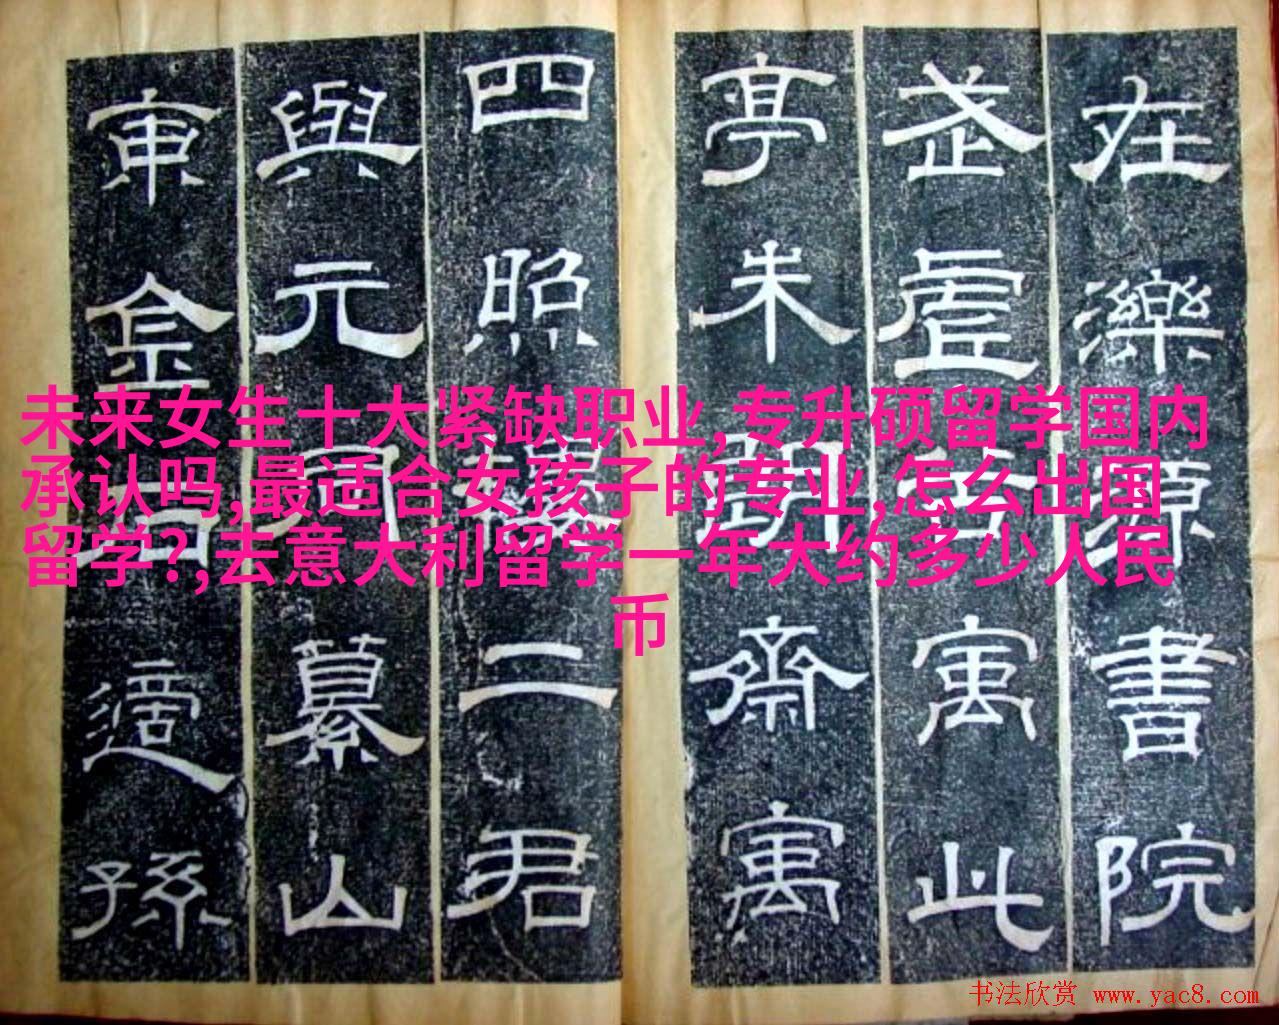 在濼源書院
武虛寓此
亭朱朗齋寓
四照二君
與元纂山
東金石適孫
未来女生十大紧缺职业,专升硕留学国内
承认吗,最适合女孩子的专业,怎么出国
留学?,去意大利留学一年大约多少人民
币
书法欣赏 www.yac8.com